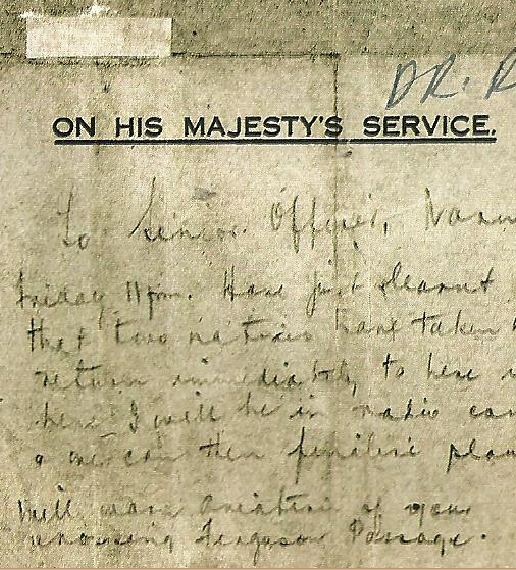 DR. R
ON HIS MAJESTY'S SERVICE.
To Senior Officer, Naru
Friday, 11 pm. Have just learnt
that two natives have taken
return immediately to here
here I will be in radio com
we can then finalise plan
Will warn aviation of your
crossing Ferguson Passage.